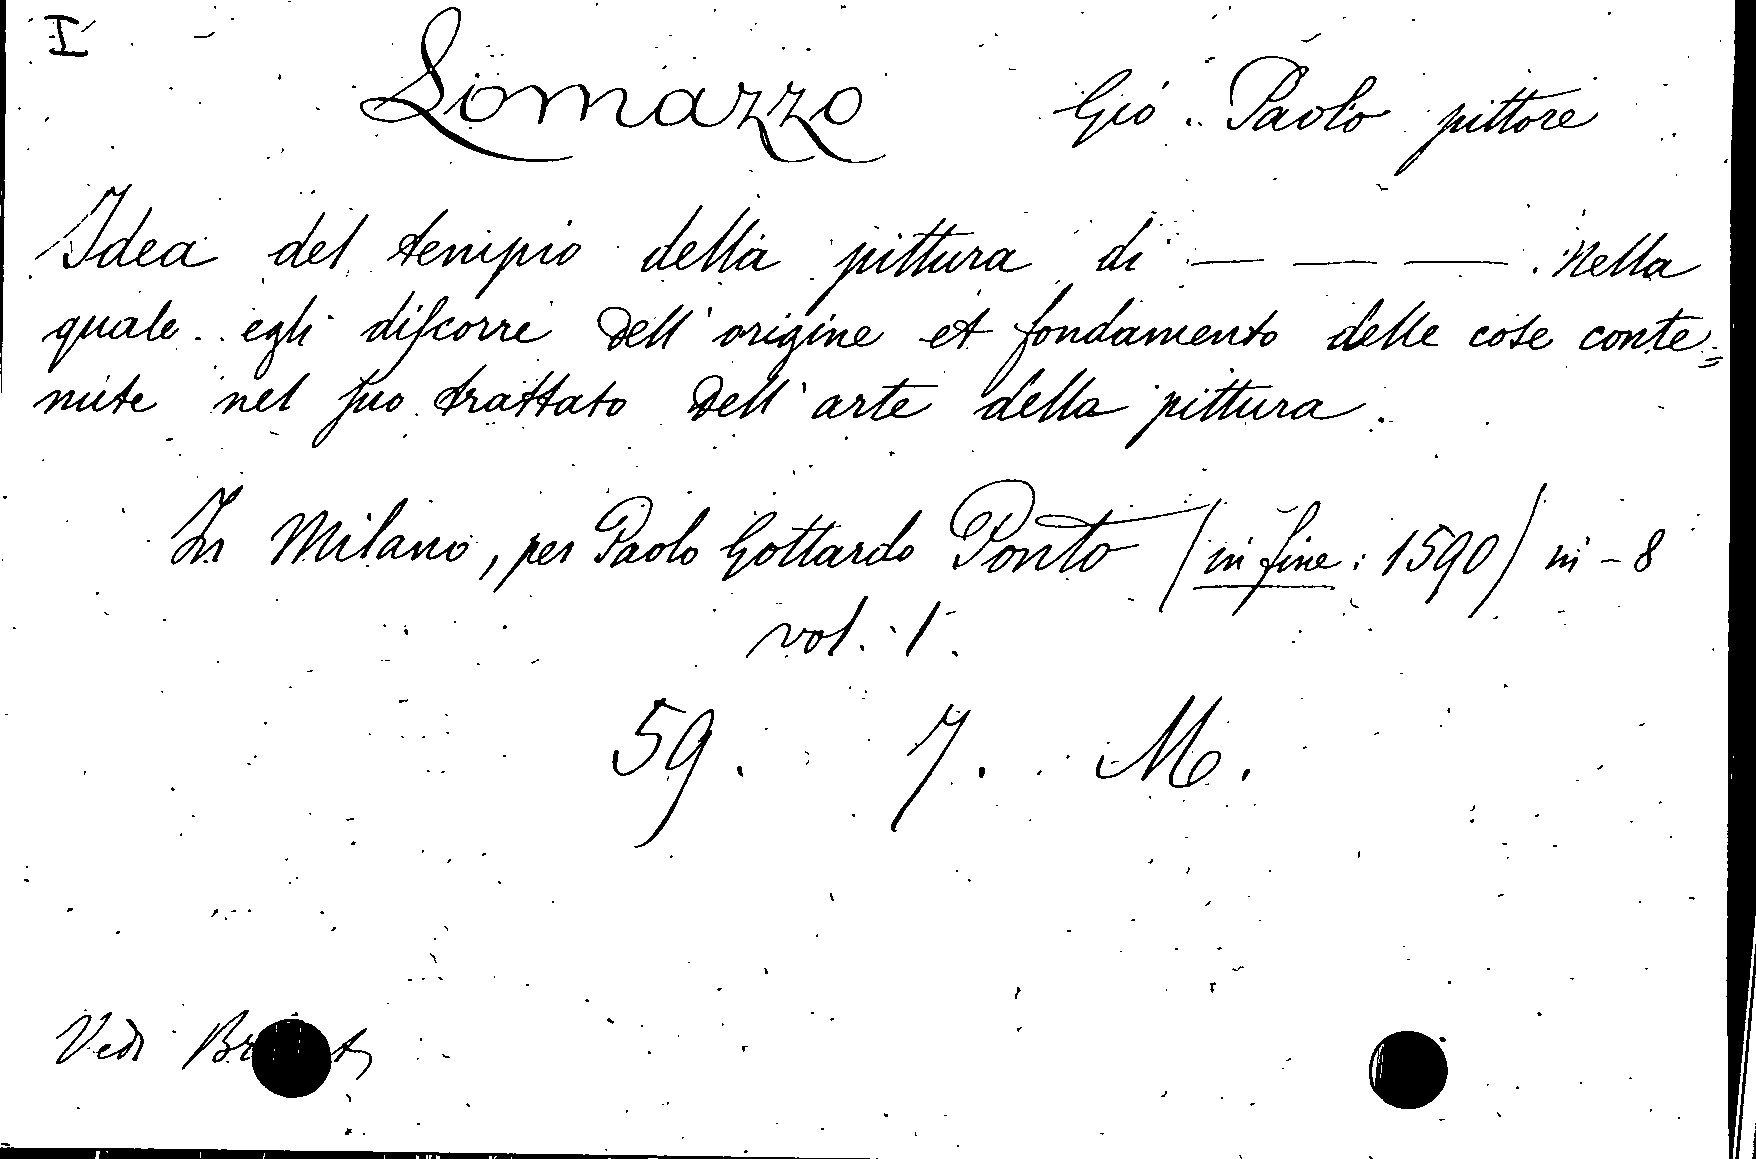 I
Lomazzo Gio. Paolo pittore
Idea del tempio della pittura di — — — . Nella
quale egli diſcorre dell'origine et fondamento delle cose conte=
nute nel ſuo trattato dell'arte della pittura.
In Milano, per Paolo Gottardo Ponto (in fine: 1590) in-8
vol. 1.
59. 7. M.
Vedi